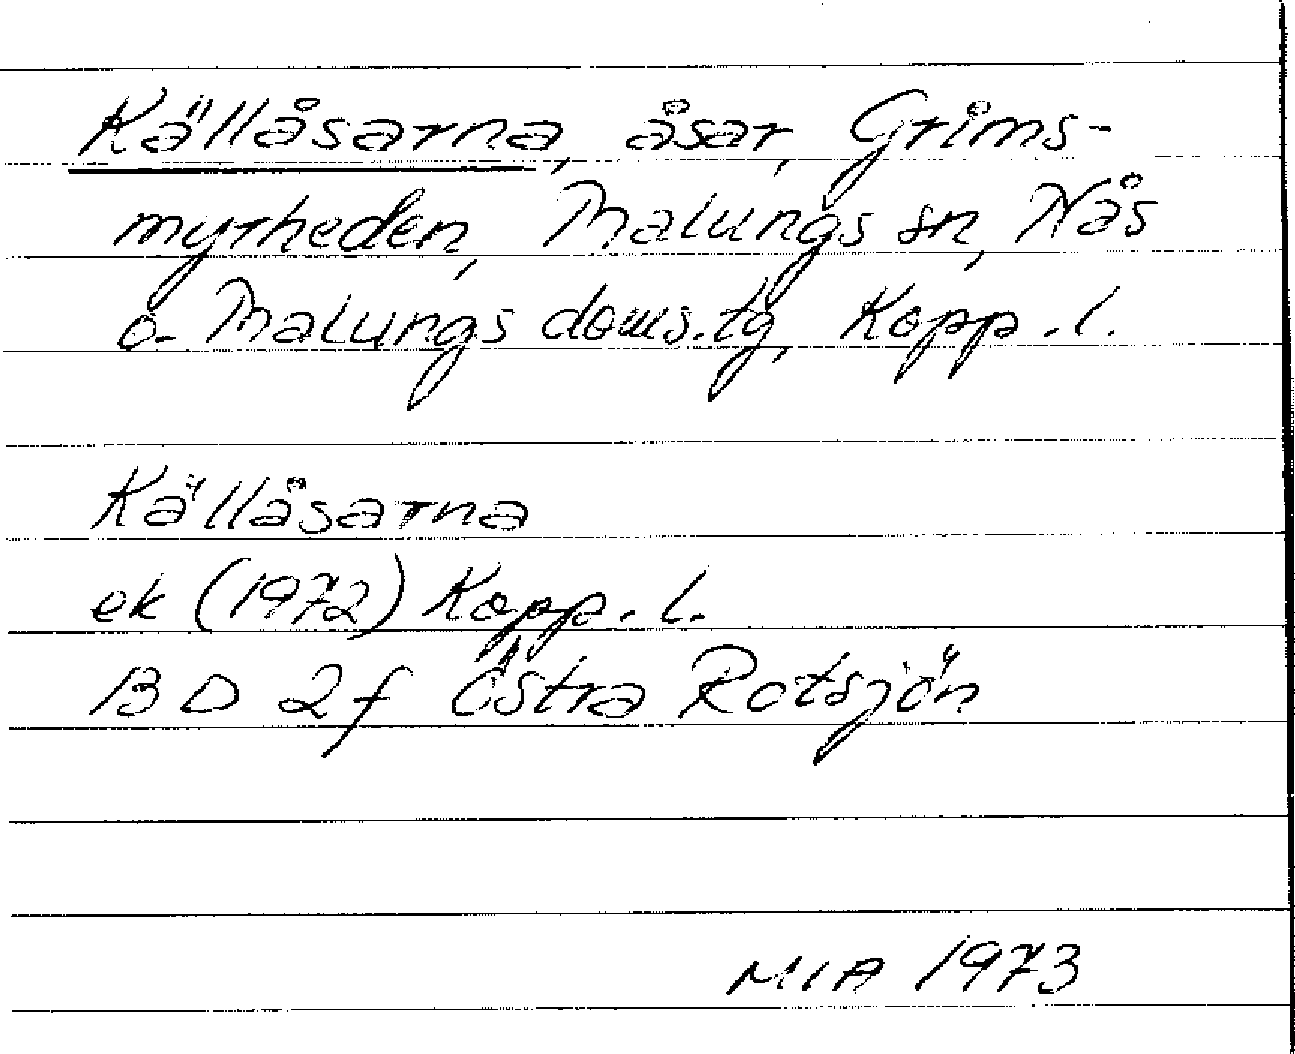 Källåsarna, åsar, Grims-
myrheden, Malungs sn, Nås
o. Malungs doms.tg, Kopp.l.
Källåsarna
ek (1972) Kopp.l.
BD 2f Östra Rotsjön
MIA 1973